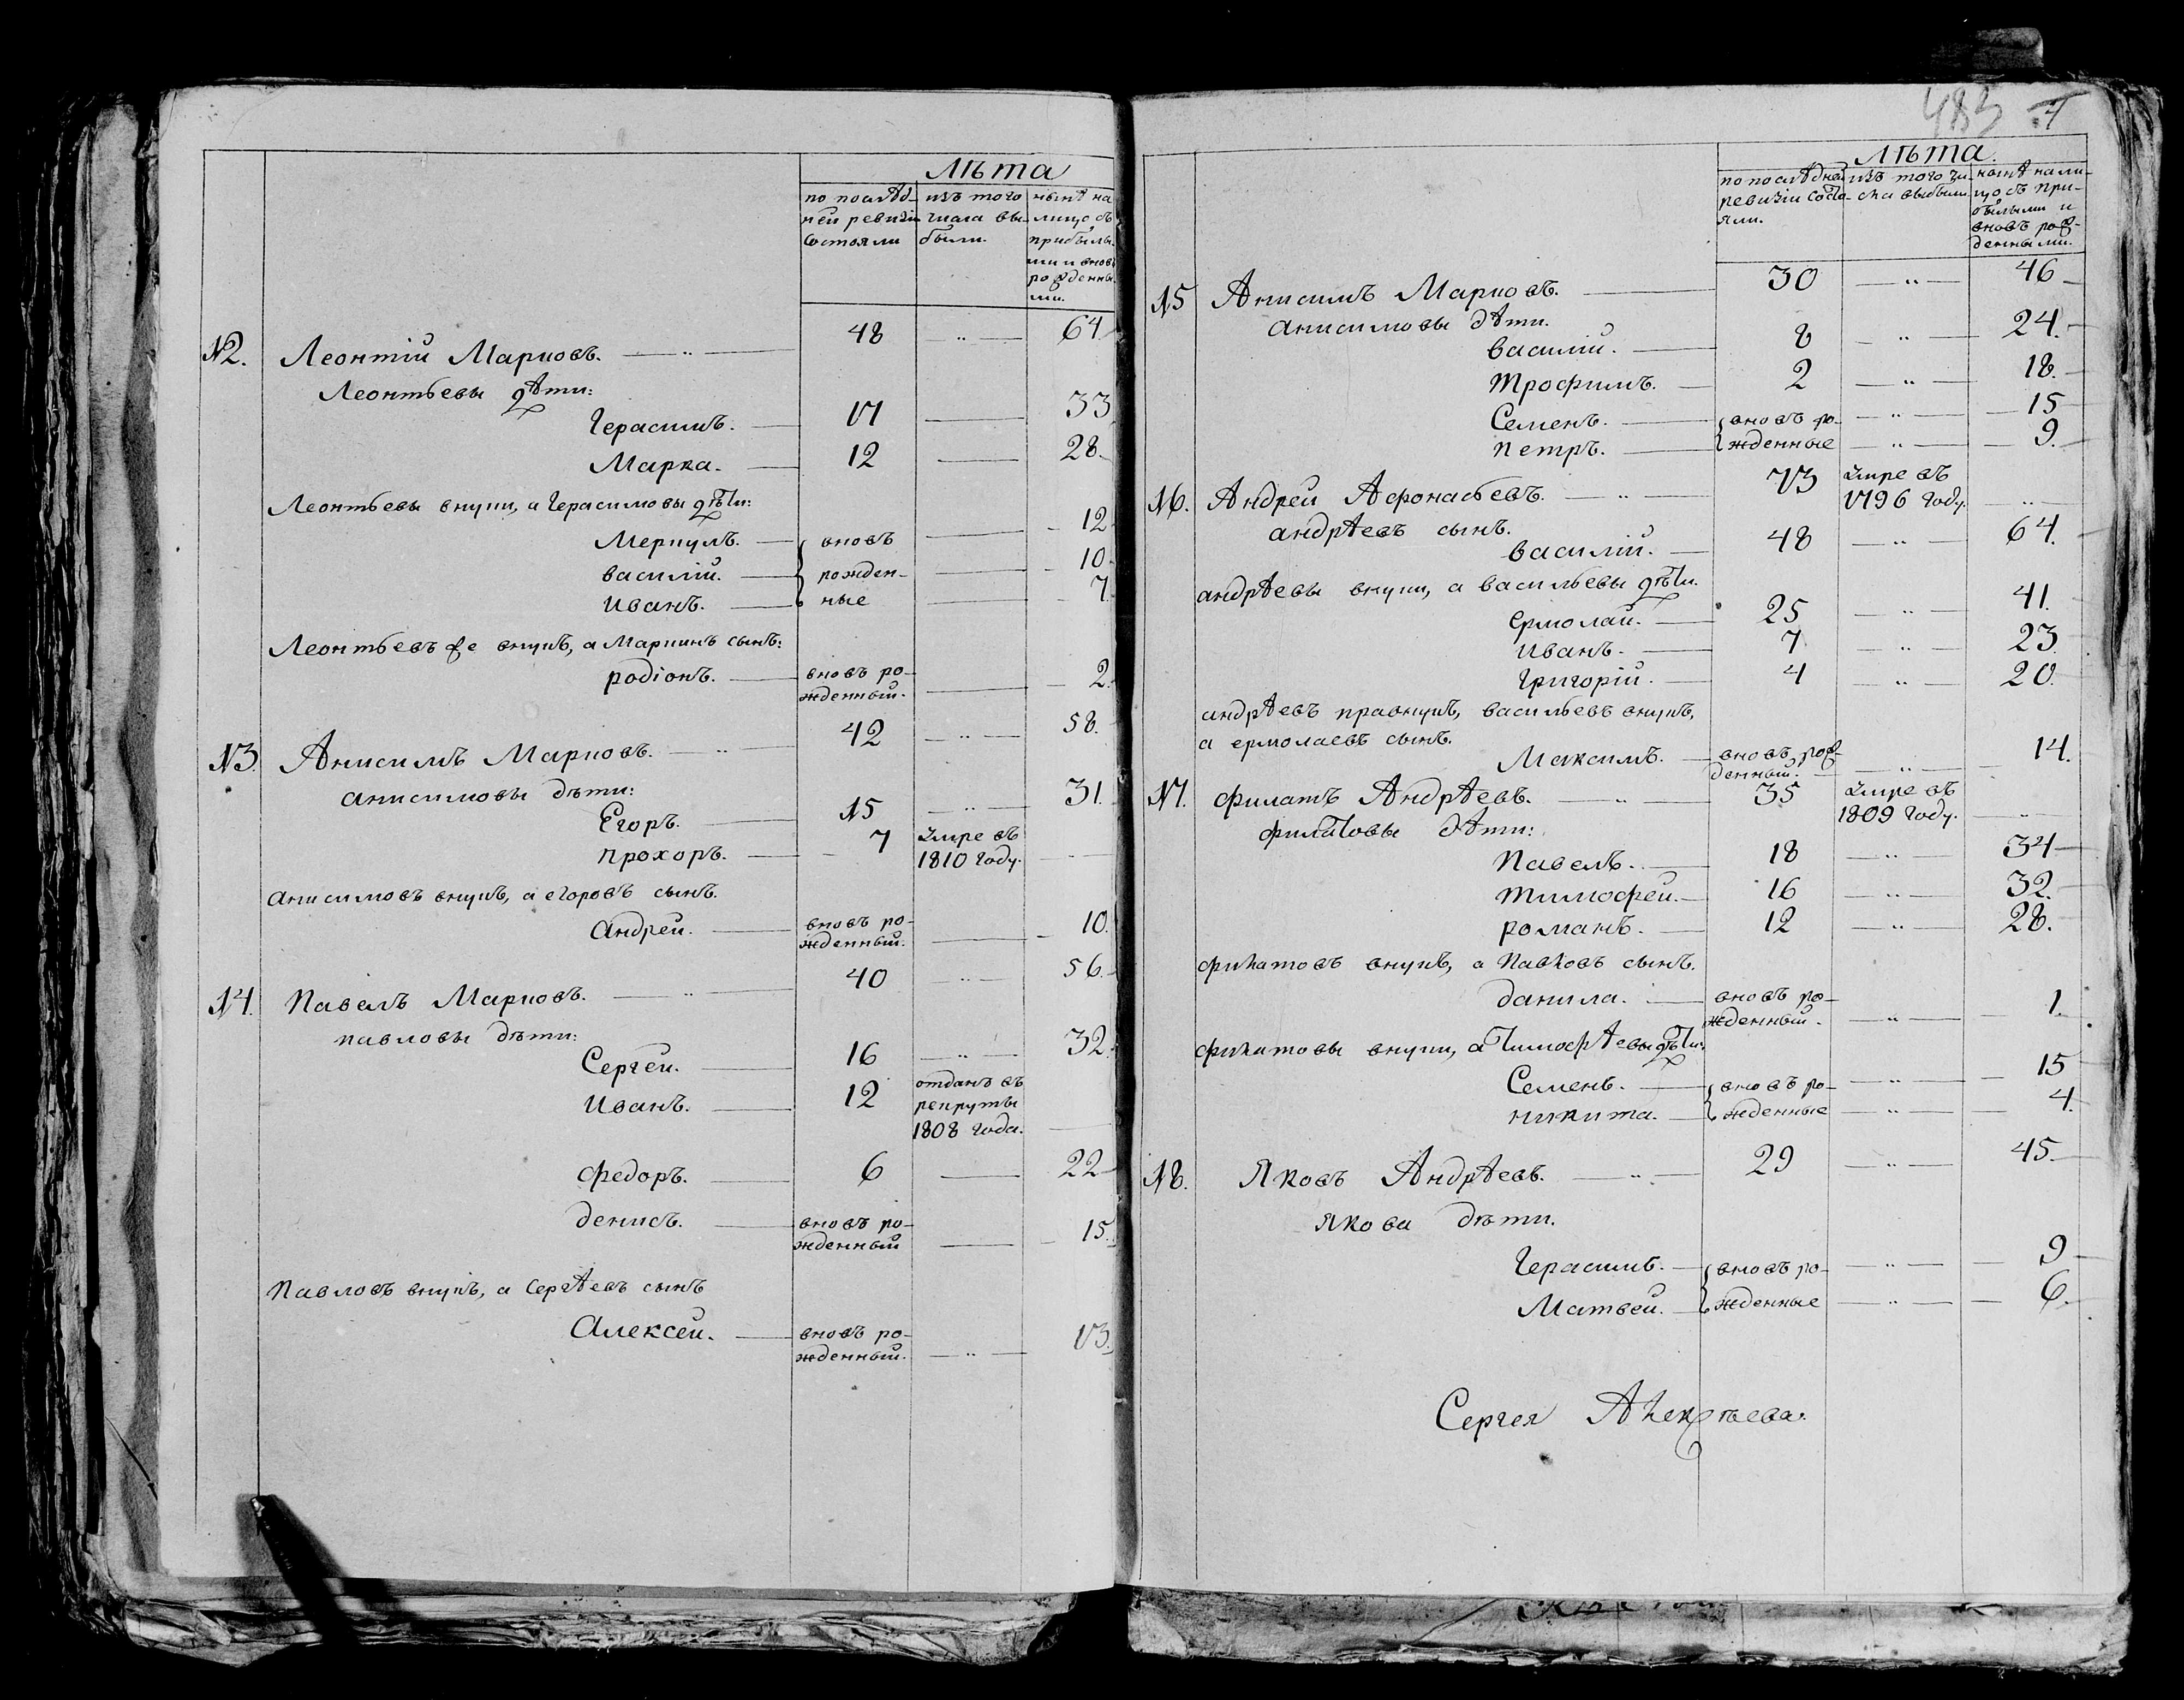 Лѣта
по послѣд- изъ того нынѣ на
ней ревизiи числа вы- лицо съ
состояли были. прибылы-
ми и вновь
рожденны-
ми.
№2. Леонтiй Марковъ. 48 „ 64
Леонтьевы дѣти:
Герасимъ. 17 33
Марка. 12 28.
Леонтьевы внуки, а Герасимовы дѣти:
Меркулъ. вновь 12
василiй. рожден- 10.
иванъ. ные 7.
Леонтьевъ же внукъ, а Маркинъ сынъ:
родiонъ. вновь ро- 2.
жденный.
№3. Анисимъ Марковъ. 42 „ 58.
анисимовы дѣти:
Егоръ. 15 „ 31.
прохоръ. 7 умре въ
1810 году.
анисимовъ внукъ, а егоровъ сынъ.
андрей. вновь ро- 10.
жденный.
№4. Павелъ Марковъ. 40 „ 56.
павловы дѣти:
Сергей. 16 „ 32.
иванъ. 12 отданъ въ
рекруты
1808 года.
федоръ. 6 22
денисъ. вновь ро- 15.
жденный
павловъ внукъ, а сергѣевъ сынъ
алексей. вновь ро- 13.
жденный. „
483 7
Лѣта.
по послѣдней изъ того чи- нынѣ нали-
ревизiи состо- сла выбыли цо съ при-
яли. былыми и
вновь рож-
денными.
№5 Анисимъ Марковъ. 30 „ 46
анисимовы дѣти.
василiй. 8 „ 24.
трофимъ. 2 „ 18.
Семенъ. вновь ро- „ 15
петръ. жденные „ 9.
№6. Андрей Афонасьевъ. „ 73 умре въ
1796 году. „
андрѣевъ сынъ.
василiй. 48 „ 64.
андрѣевы внуки, а васильевы дѣти.
ермолай. 25 „ 41.
иванъ. 7 „ 23.
григорiй. 4 „ 20.
андрѣевъ правнукъ, васильевъ внукъ,
а ермолаевъ сынъ.
Максимъ. вновь рож- „ 14.
денный.
№7. филатъ Андрѣевъ. „ 35 умре въ
1809 году. „
филатовы дѣти:
павелъ. 18 „ 34
тимофей. 16 „ 32.
романъ. 12 „ 28.
филатовъ внукъ, а павловъ сынъ.
данила. вновь ро- 1.
жденный. „
филатовы внуки, а тимофѣевы дѣти:
Семенъ. вновь ро- „ 15
никита. жденные „ 4.
№8. Яковъ Андрѣевъ. „ 29 „ 45
якова дѣти.
Герасимъ. вновь ро- „ 9
Матвей. жденные „ 6.
Сергея Алексѣева.